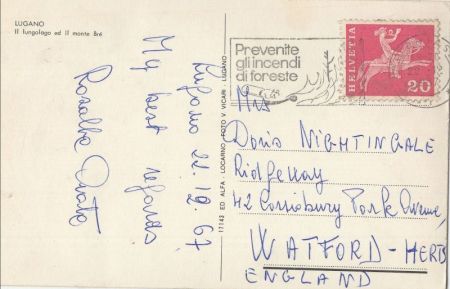 LUGANO
Il lungolago ed il monte Brè
Lugano 22.12.67
My best regards
Rosalba
17143 ED ALFA - LOCARNO - FOTO V VICARI LUGANO
Prevenite
gli incendi
di foreste
HELVETIA
20
Mrs
Doris NIGHTINGALE
Ridgeway
42 Cassiobury Park Avenue,
WATFORD - HERTS
ENGLAND